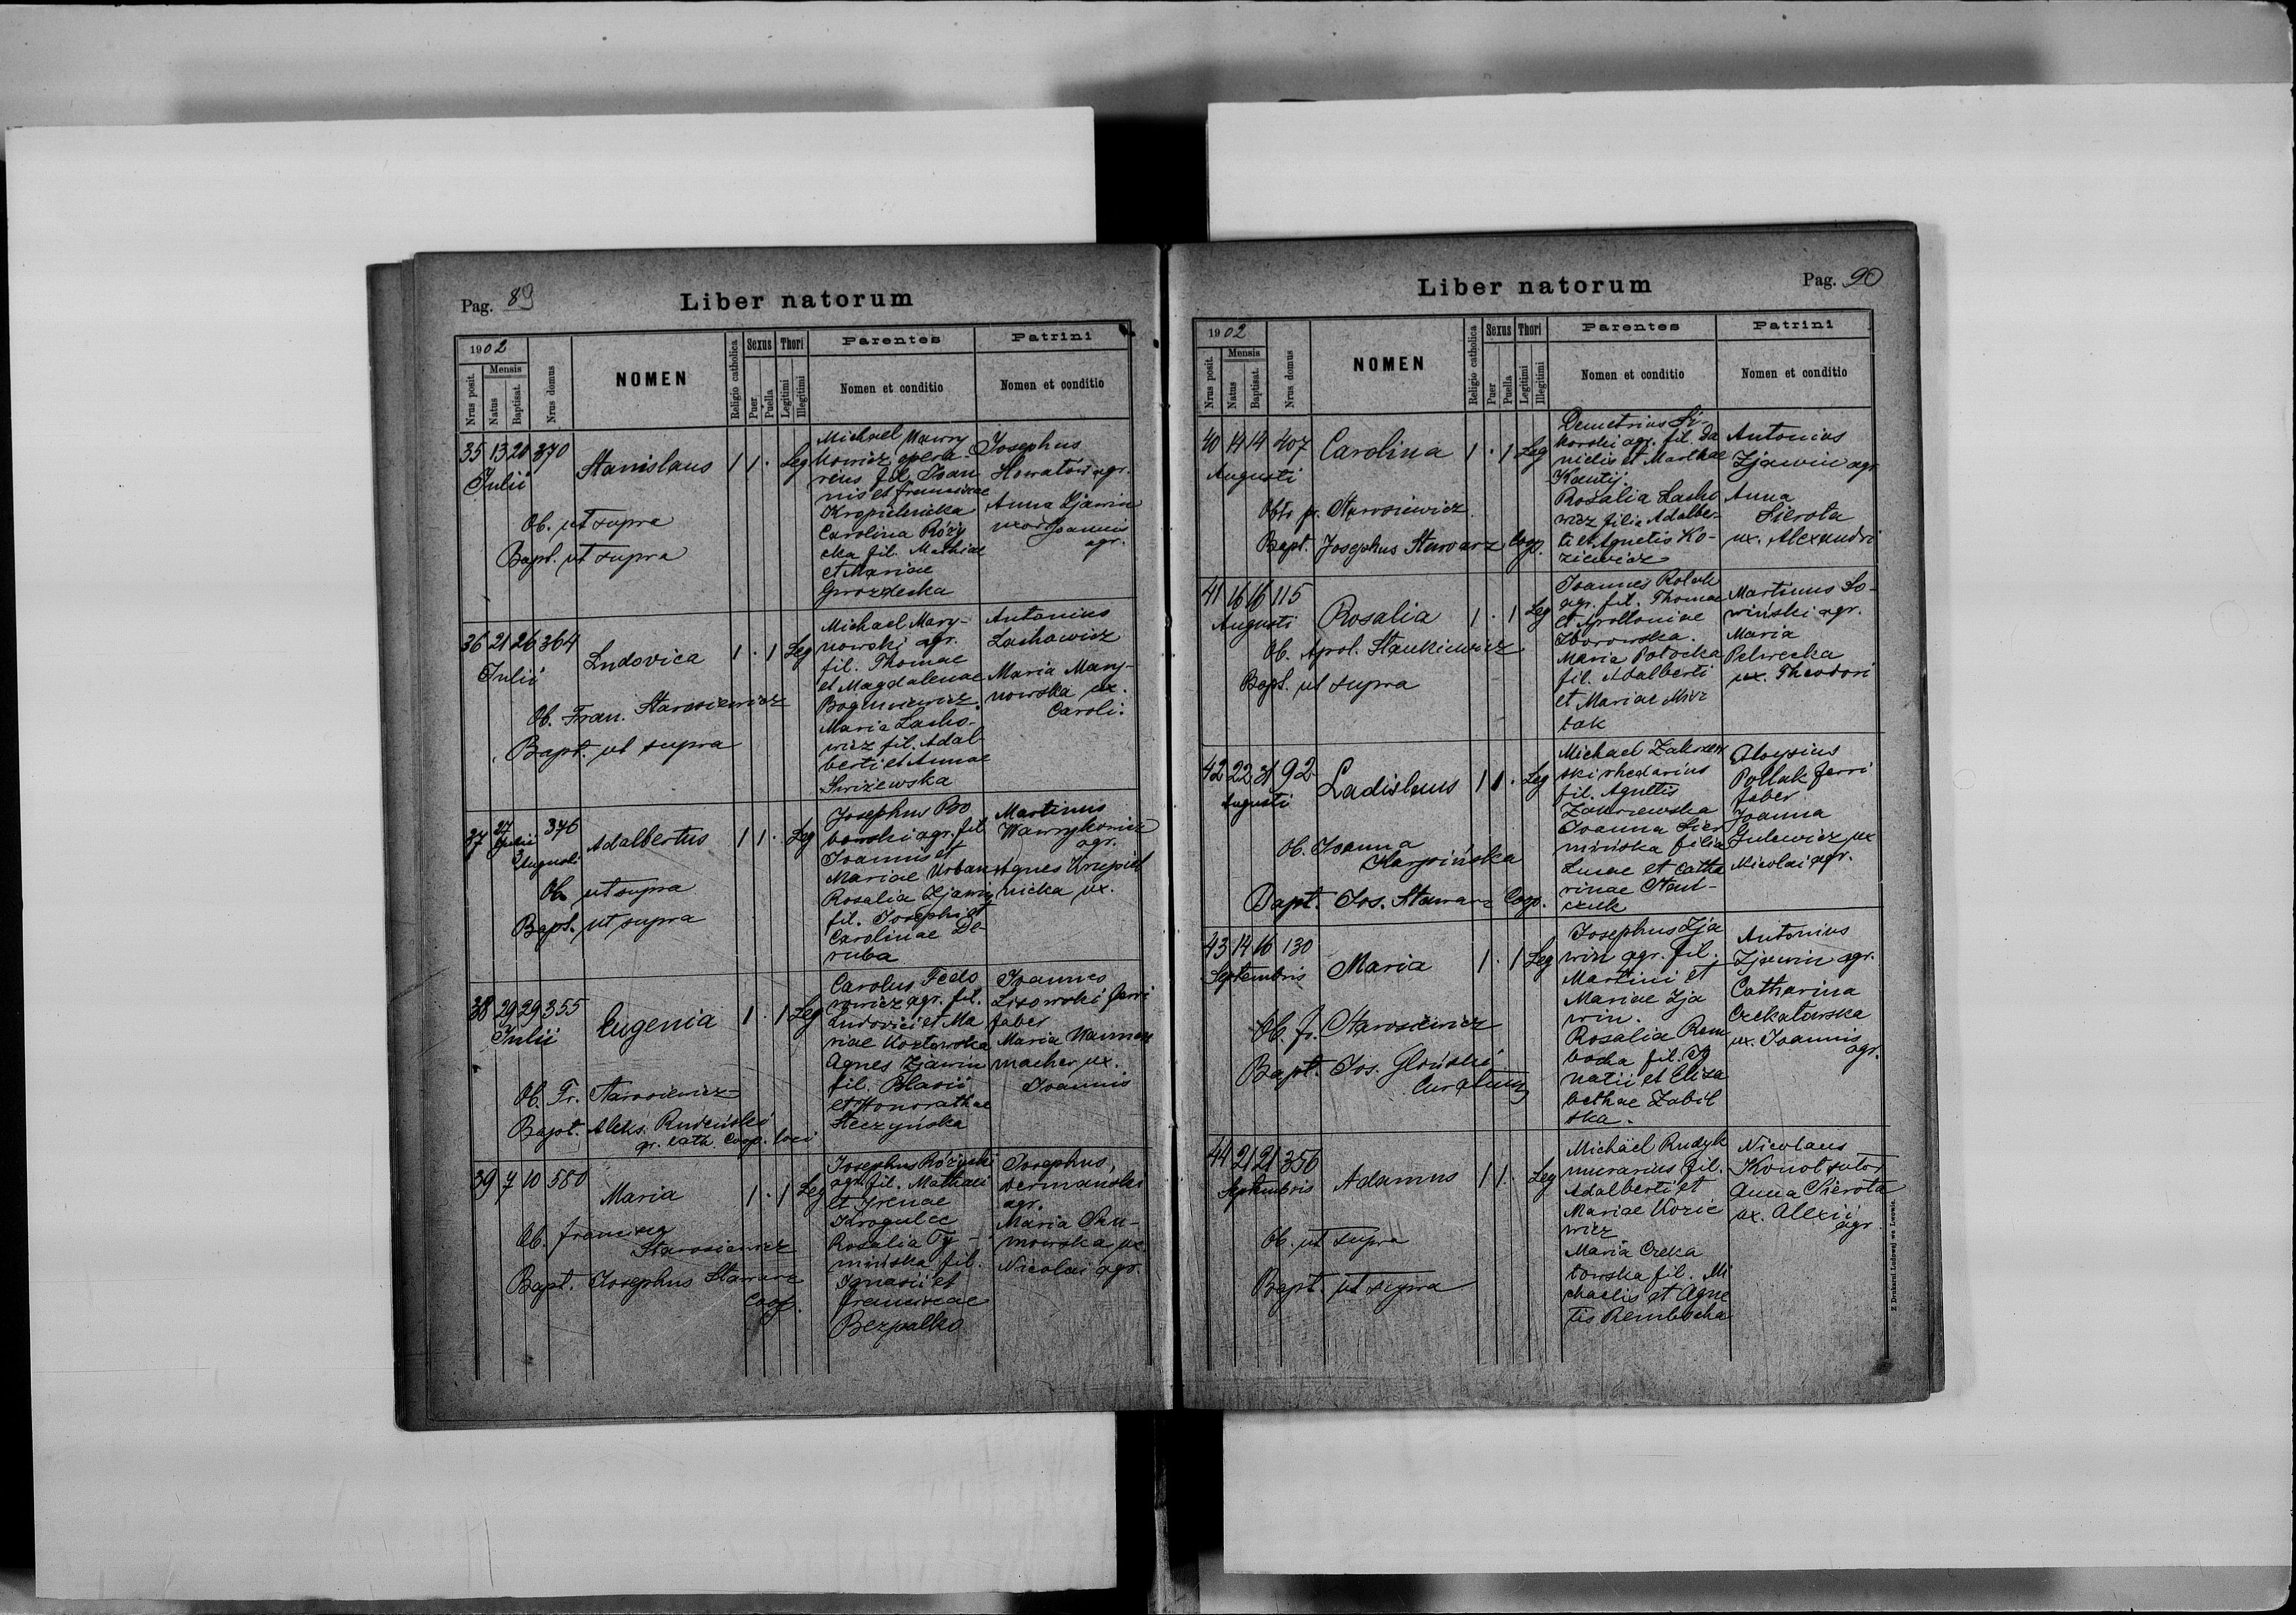 Pag. 89
Liber natorum
1902
Nrus posit.
Mensis
Natus
Baptisat.
Nrus domus
NOMEN
Religio catholica
Sexus
Puer
Puella
Thori
Legitimi
Illegitimi
Parentes
Nomen et conditio
Patrini
Nomen et conditio
35 13 20 370
Julii
Stanislaus 1 1 . Leg
Ob. ut supra
Bapt. ut supra
Michael Wawry
kowicz opera-
rius fil. Joan
nis et Franciscae
Kropielnicka
Carolina Róży
cka fil. Mathiae
et Mariae
Gwozdecka
Josephus
Howatów agr.
Anna Zjawin
uxor Joannis
agr.
36 21 26 364
Julii
Ludovica 1 . 1 Leg
Ob. Fran. Starosiewicz
Bapt. ut supra
Michael Mary-
nowski agr.
fil. Thomae
et Magdalenae
Maria Lacho-
wicz fil. Adal
berti et Annae
Świżewska
Antonius
Lachowicz
Maria Mary-
nowska ux.
Caroli.
37 27 376
Julii
3
Augusti
Adalbertus 1 1 . Leg
Ob. ut supra
Bapt. ut supra
Josephus Bo
agr. fil
Joannis et
Mariae Urban
Rosalia Zjawin
fil. Josephi et
Carolinae De-
ruba
Martinus
Wawrykowicz
agr.
Agnes Kropiel
nicka ux.
38 29 29 355
Julii
Eugenia 1 . 1 Leg
Ob. Fr. Starosiewicz
Bapt. Aleks. Rudeński
gr. cath. Coop. loci
Carolus Fedo
rowicz agr. fil.
Ludovici et Ma
riae Kozłowska
Agnes Zjawin
fil. Blasii
et Honorathae
Steczyńska
Joannes
Lisowski ferri
faber
Maria Wannen
macher ux.
Joannis
39 7 10 580
Maria 1 . 1 Leg
Ob. Francisca
Starosiewicz
Bapt. Josephus Stawarz
Coop.
Josephus Różycki
agr. fil. Mathaei
et Irenae
Krogulec
Rosalia Ty-
mińska fil.
Ignasii et
Franciscae
Bezpalko
Josephus
Dermański
agr.
Maria
ux.
Nicolai agr.
Liber natorum
Pag. 90
1902
Nrus posit.
Mensis
Natus
Baptisat.
Nrus domus
NOMEN
Religio catholica
Sexus
Puer
Puella
Thori
Legitimi
Illegitimi
Parentes
Nomen et conditio
Patrini
Nomen et conditio
40 14 14 407
Augusti
Carolina 1 . 1 Leg
Starosiewicz
Bapt. Josephus Stawarz Coop.
Demetrius Si-
korski agr. fil. Da
nielis et Marthae
Kantij.
Rosalia Lacho
wicz filia Adalber-
ti et Agnetis Ko-
ziewicz
Antonius
Zjawin agr.
Anna
Sierota
ux. Alexandri
41 16 16 115
Augusti
Rosalia 1 . 1 Leg
Ob. Apol. Stankiewicz
Bapt. ut supra
Joannes Polak
agr. fil. Thomae
et Apolloniae
Zborowska.
Maria Potocka
fil. Adalberti
et Mariae
Martinus So-
wiński agr.
Maria
Pelwecka
ux. Theodori
42 22 31 92
Augusti
Ladislaus 1 1 . Leg
Ob. Joanna
Karpińska
Bapt. Jos. Stawarz Coop.
Michael Zakrzew
ski rhedarius
fil. Agnetis
Zakrzewska
Joanna Sier
mińska filia
Lucae et Catha
rinae
czuk
Aloysius
Pollak ferri
faber
Joanna
Gulewicz ux
Nicolai agr.
43 14 16 130
Septembris
Maria 1 . 1 Leg
Ob. fr. Starosiewicz
Bapt. Jos. Gliński
Josephus Zja
win agr. fil.
Martini et
Mariae Zja
win.
Rosalia Rem
bocha fil. Ig
natii et Eliza
bethae Zabil
ska.
Antonius
Zjawin agr.
Catharina
Czekatowska
ux. Joannis
agr.
44 21 21 356
Septembris
Adamus 1 1 . Leg
Ob. ut supra
Bapt. ut supra
Michael Rudyk
murarius fil.
Adalberti et
Mariae Kozie
wicz
Maria Czeka
towska fil. Mi
chaelis et Agne
tis Rembocha
Nicolaus
Konot sutor
Anna Sierota
ux. Alexii
agr.
Z Drukarni Ludowej we Lwowie.